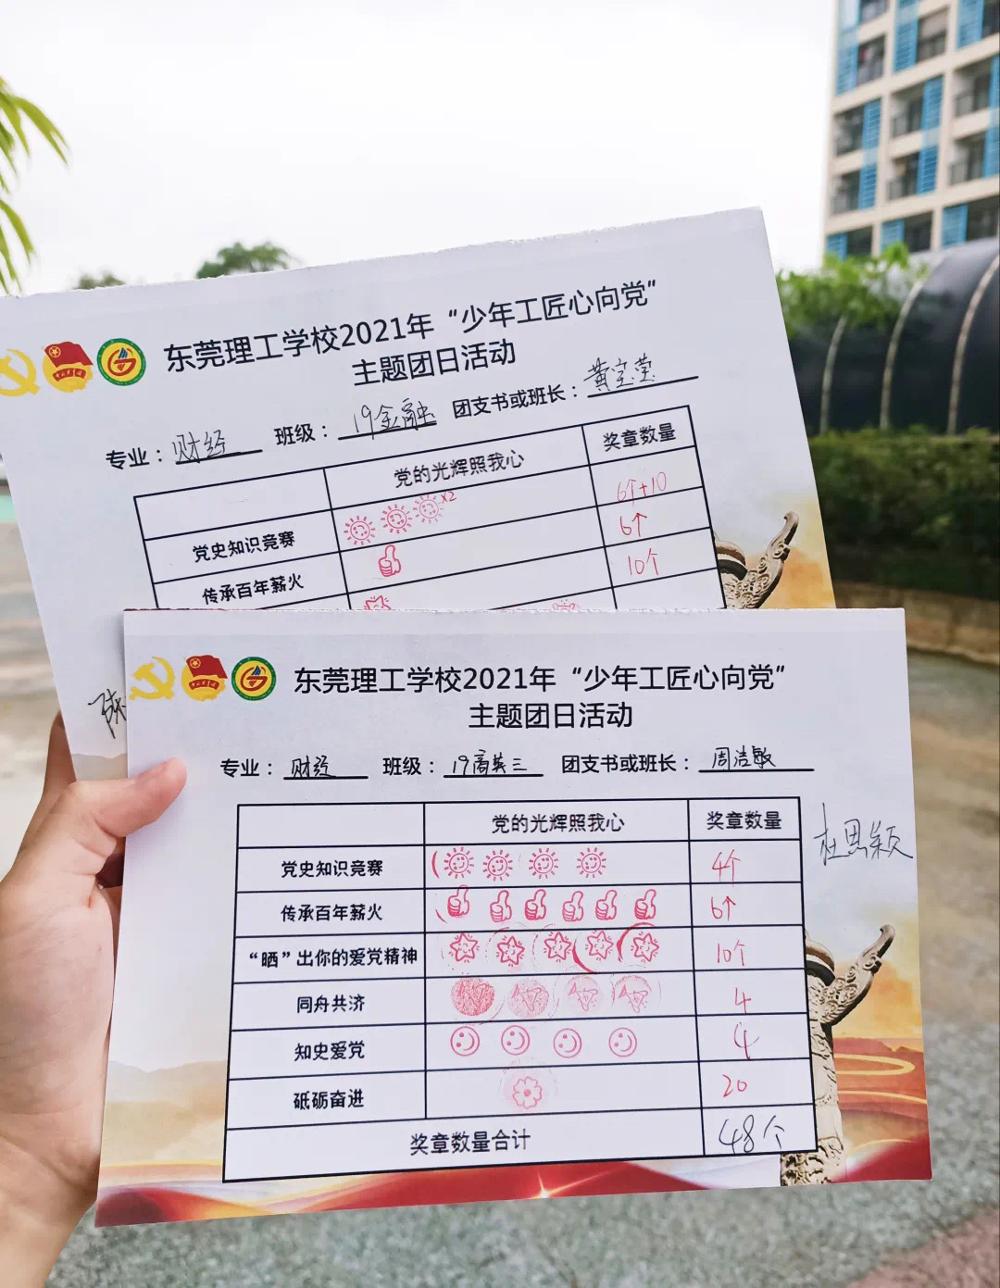 东莞理工学校2021年“少年工匠心向党”
主题团日活动
专业：财经 班级：19金融 团支书或班长：黄宝莹
党的光辉照我心 奖章数量
党史知识竞赛 x2 6个+10
传承百年薪火 6个
10个
陈
东莞理工学校2021年“少年工匠心向党”
主题团日活动
专业：财经 班级：19商英三 团支书或班长：周洁敏
党的光辉照我心 奖章数量
杜思颖
党史知识竞赛 4个
传承百年薪火 6个
“晒”出你的爱党精神 10个
同舟共济 4
知史爱党 4
砥砺奋进 20
奖章数量合计 48个